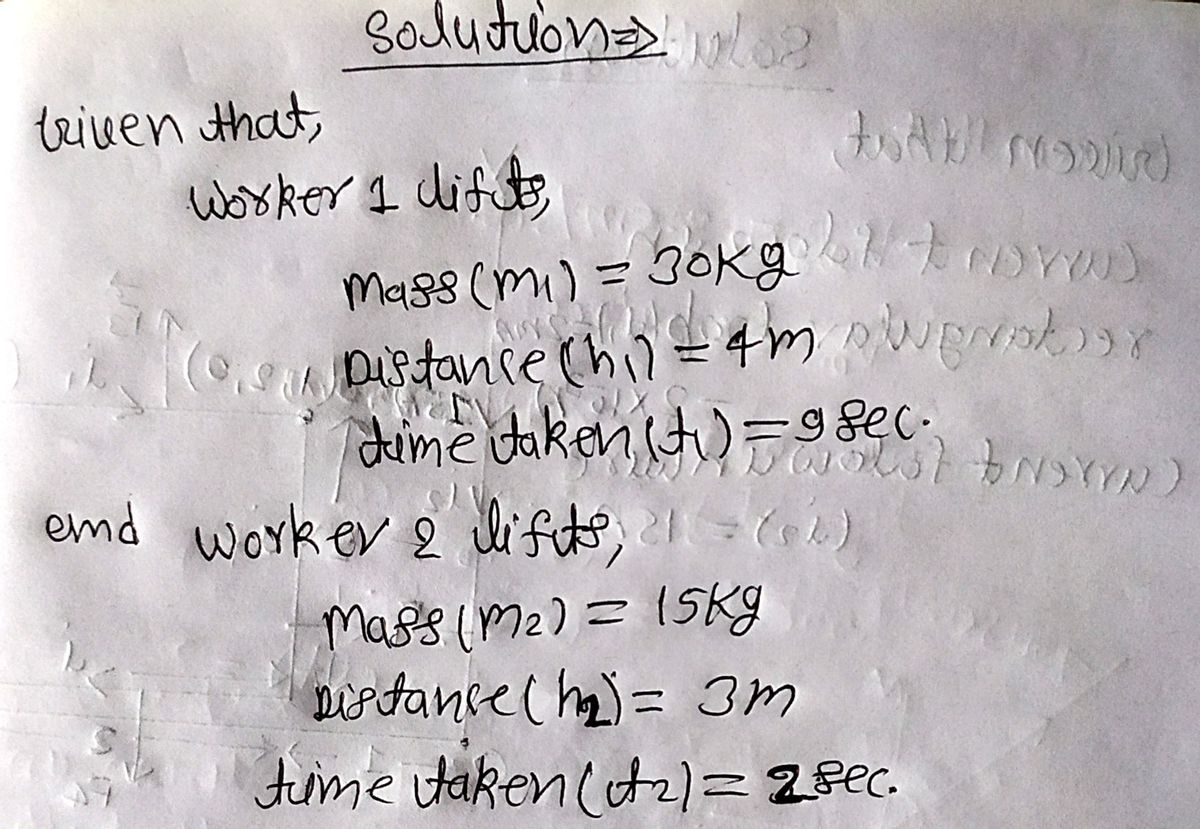 Solution⇒
Given that,
Worker 1 lifts,
Mass (m1) = 30kg
Distance (h1) = 4m
time taken (t1) = 9 sec.
and worker 2 lifts,
Mass (m2) = 15kg
Distance (h2) = 3m
time taken (t2) = 2 sec.